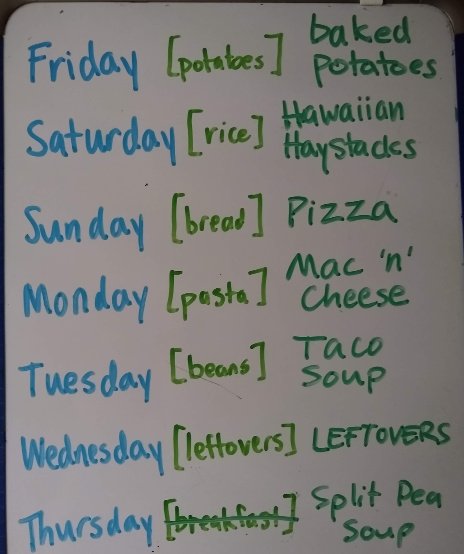 Friday [potatoes] baked
potatoes
Saturday [rice] Hawaiian
Haystacks
Sunday [bread] Pizza
Monday [pasta] Mac 'n'
Cheese
Tuesday [beans] Taco
Soup
Wednesday [leftovers] LEFTOVERS
Thursday [breakfast] Split Pea
Soup